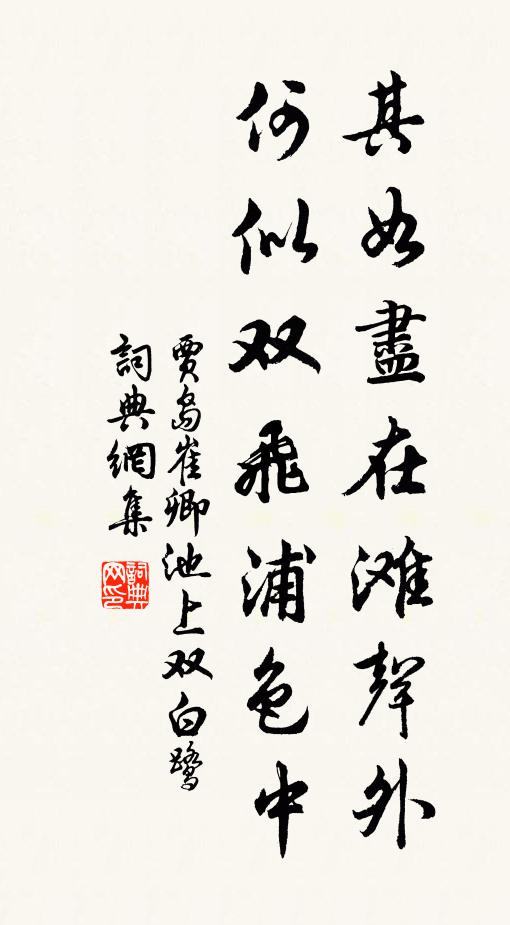 其如盡在滩聲外
何似双飛浦色中
贾岛崔卿池上双白鹭
詞典網集
詞典網印